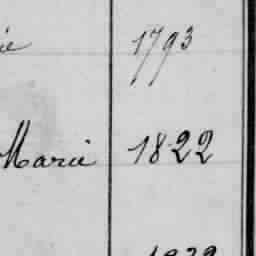 ie 1793
Marie 1822